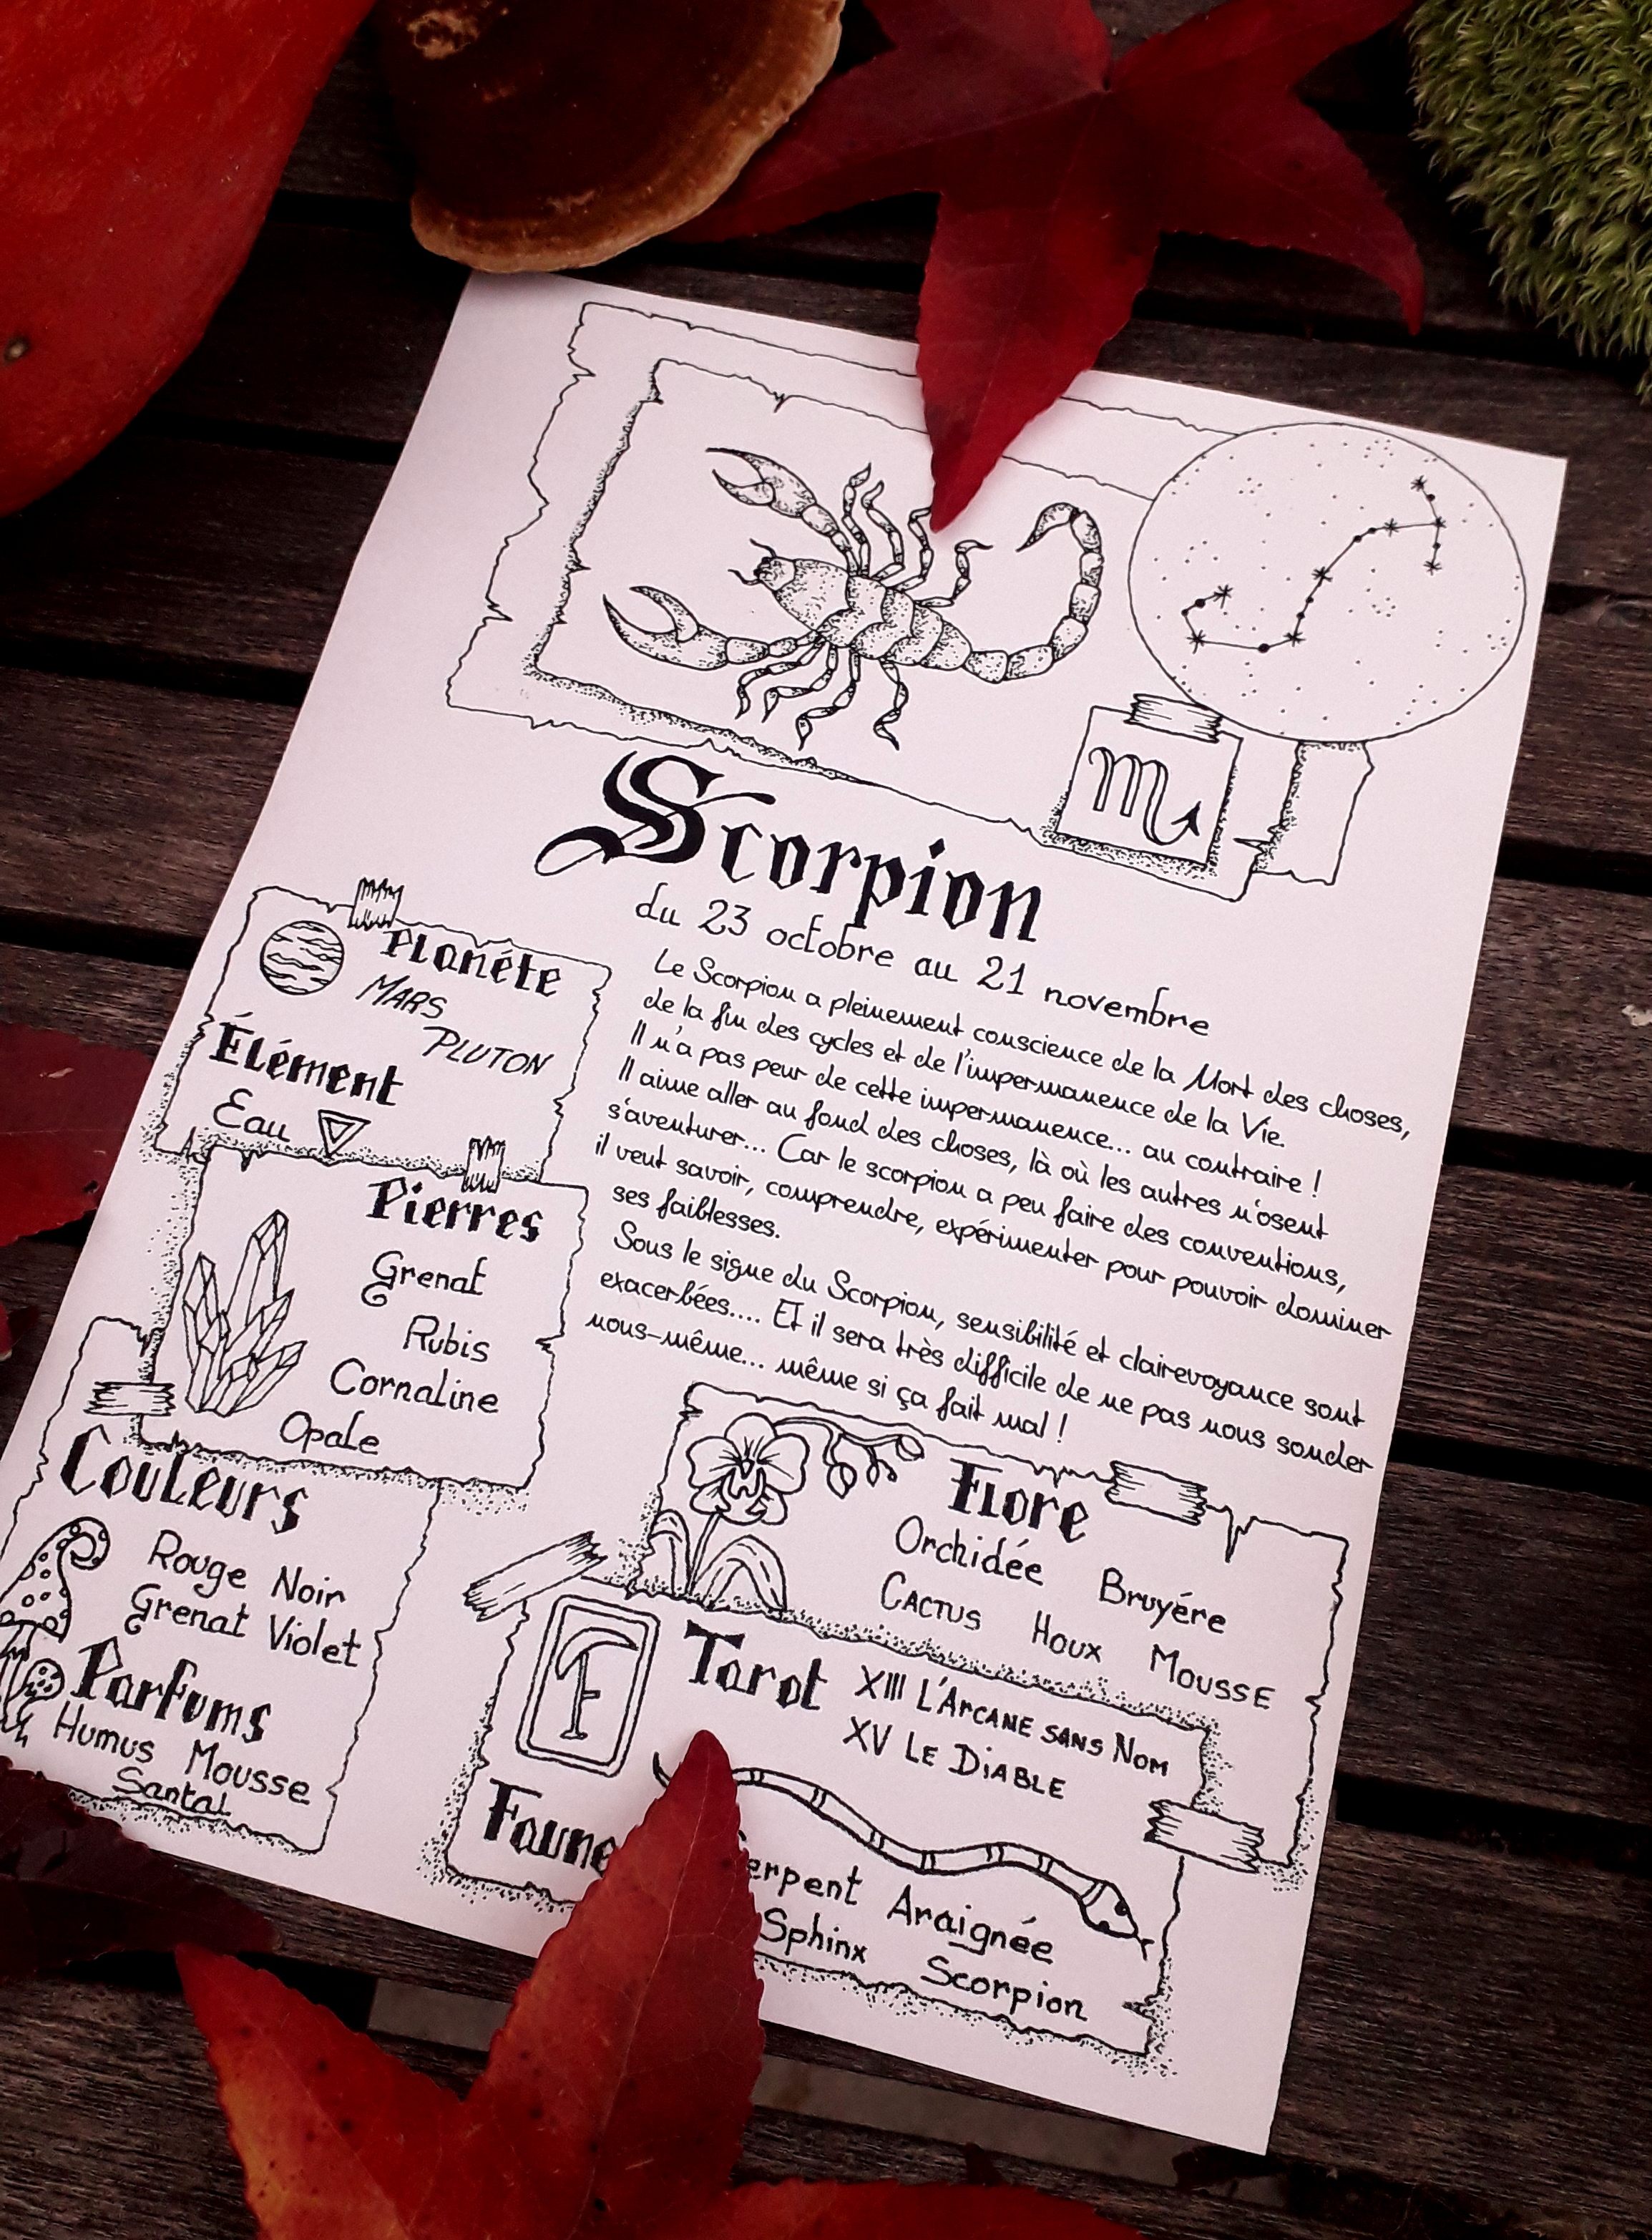 Scorpion
du 23 octobre au 21 novembre
Le Scorpion a pleinement conscience de la Mort des choses,
de la fin des cycles et de l'impermanence de la Vie.
Il n'a pas peur de cette impermanence... au contraire !
Il aime aller au fond des choses, là où les autres n'osent
s'aventurer... Car le scorpion a peu faire des conventions,
il veut savoir, comprendre, expérimenter pour pouvoir dominer
ses faiblesses.
Sous le signe du Scorpion, sensibilité et clairevoyance sont
exacerbées.... Et il sera très difficile de ne pas nous sonder
nous-même... même si ça fait mal !
Planéte
MARS
PLUTON
Élément
Eau
Pierres
Grenat
Rubis
Cornaline
Opale
Couleurs
Rouge Noir
Grenat Violet
Parfums
Humus Mousse
Santal
Flore
Orchidée Bruyére
CACTUS Houx MOUSSE
Tarot XIII L'ARCANE SANS NOM
XV LE DIABLE
Faune erpent Araignée
Sphinx Scorpion